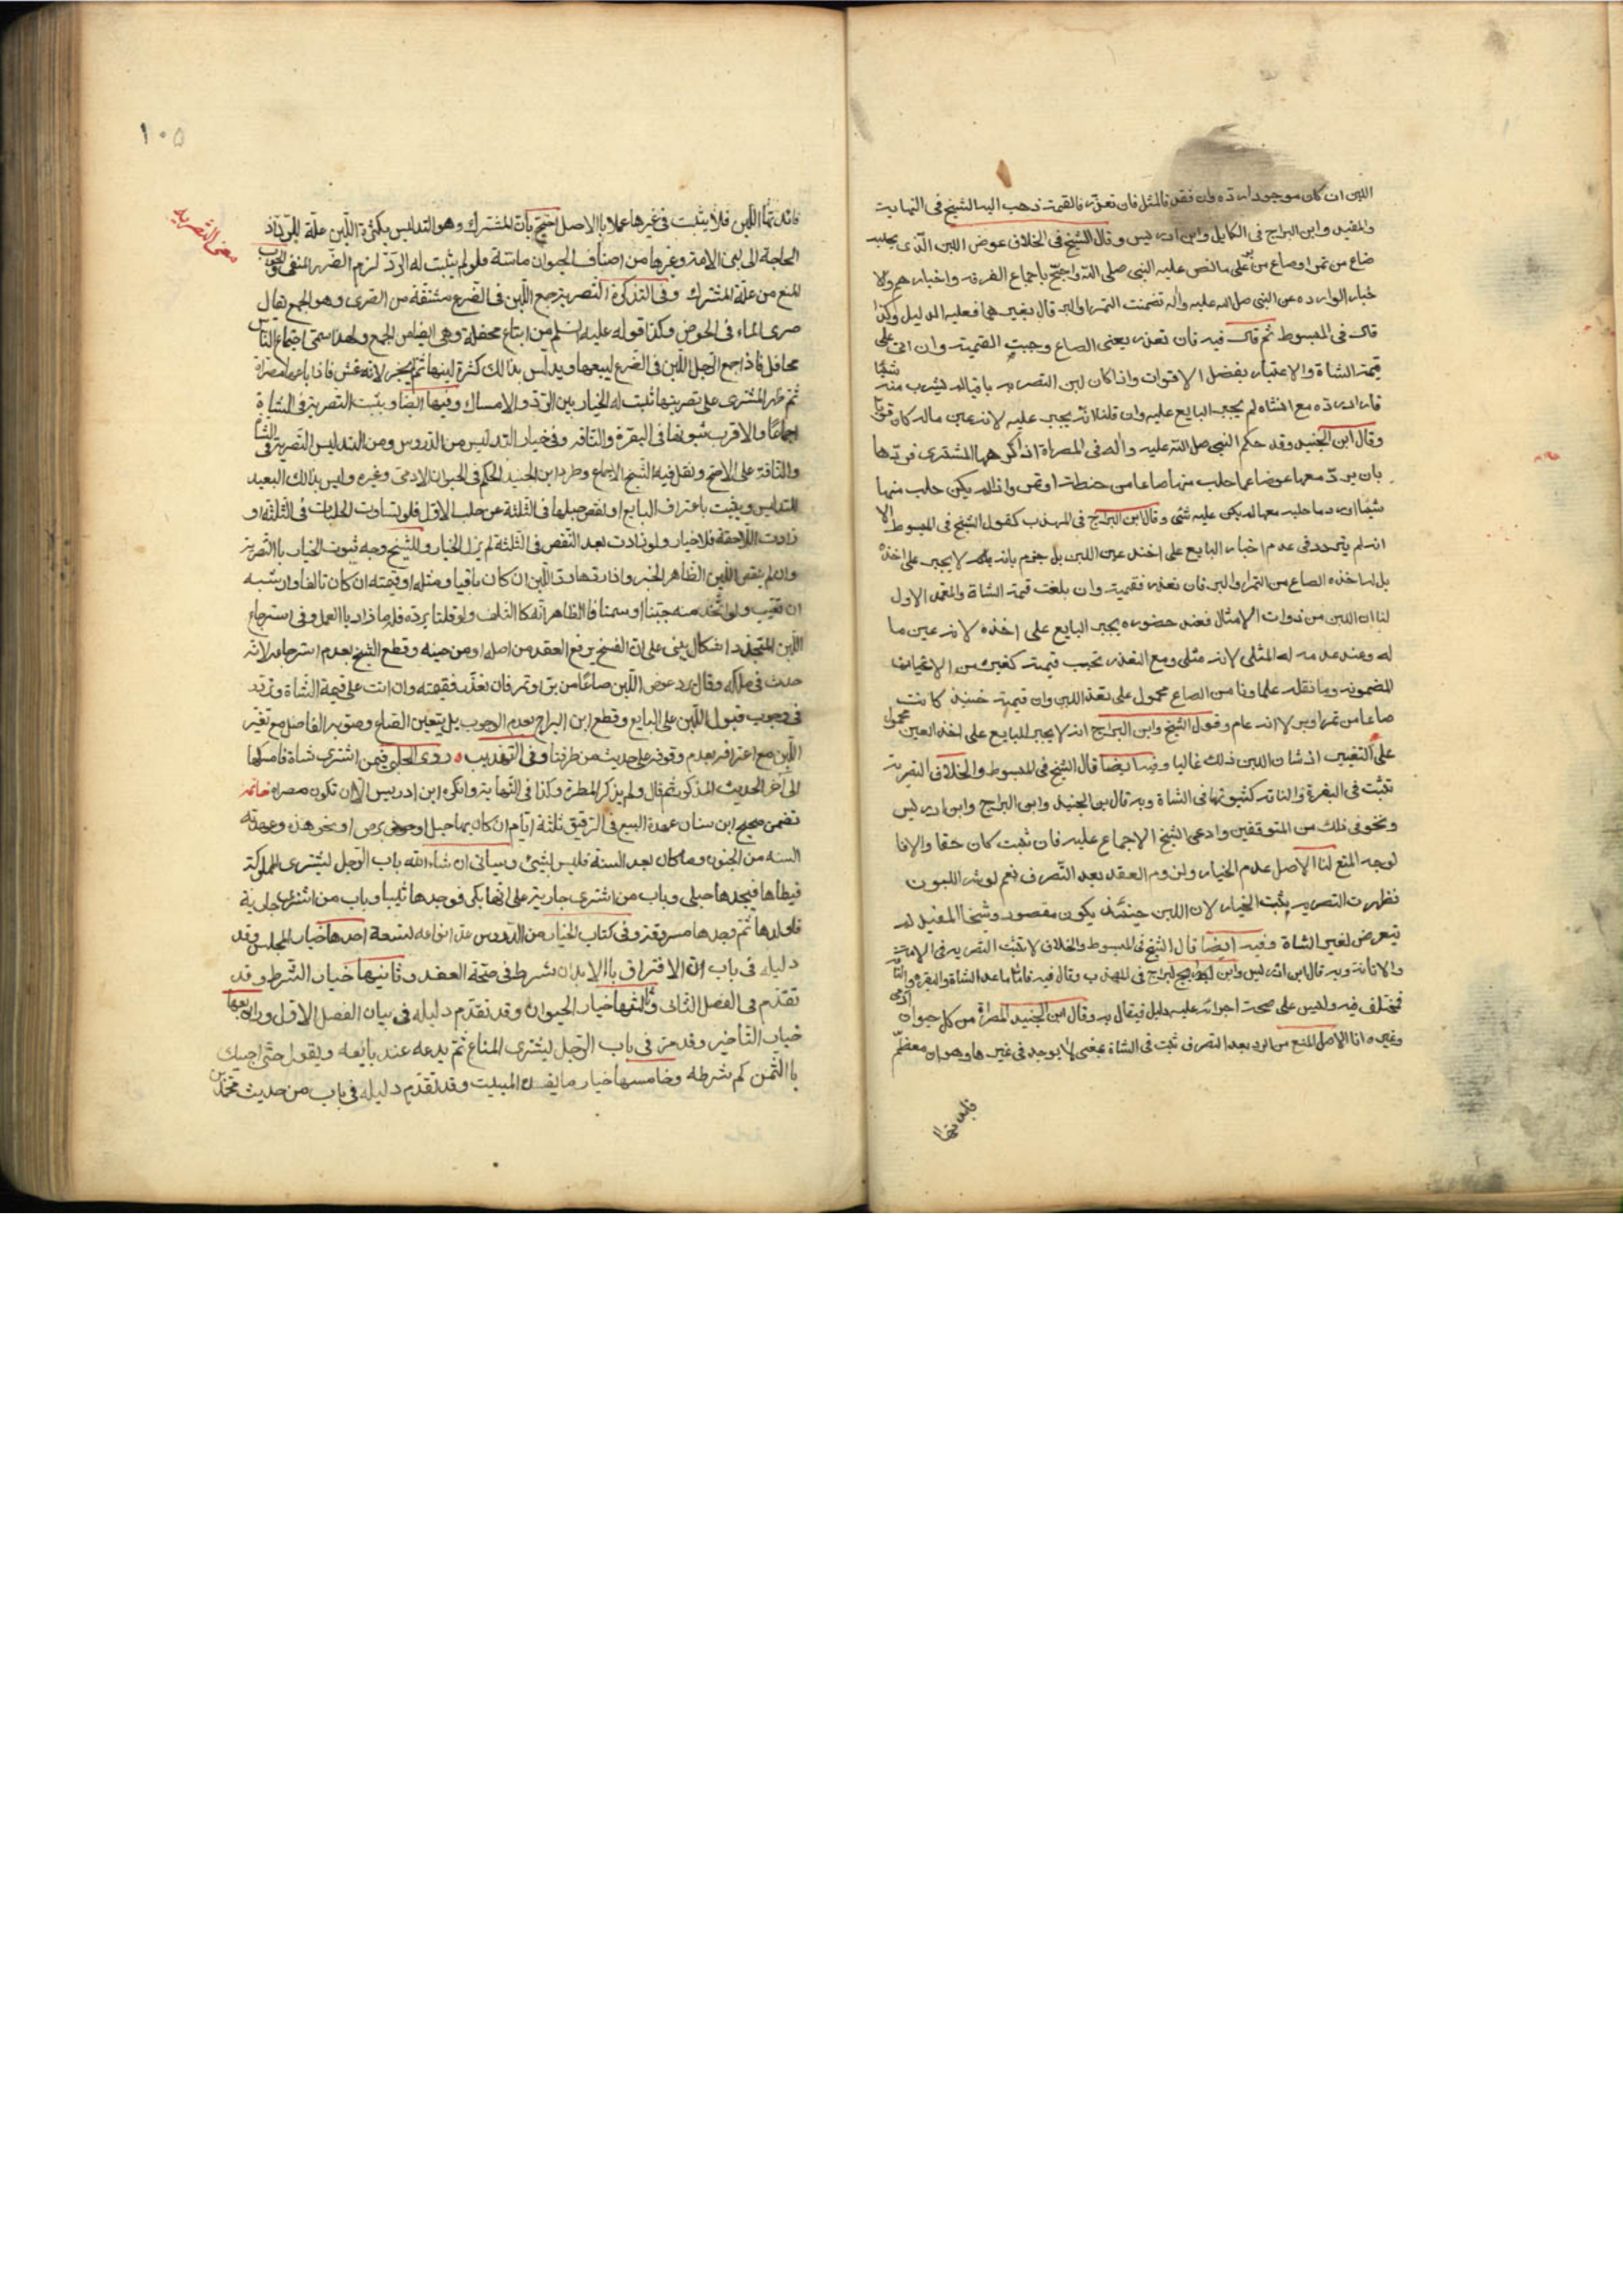 اللبن ان كان موجودا رده فان فقد فالمثل فان تعذر فالقيمة ذهب اليه الشيخ فى النهاية
والمفيد وابن البراج فى الكامل وابن ادريس وقال الشيخ فى الخلاف عوض اللبن الذى يحلبه
صاع من تمر او صاع من بر على ما نص عليه النبى صلى الله واحتج باجماع الفرقه واخبارهم ولا
خبار الوارده عن النبى صلى الله عليه واله تضمنت التمر والبر قال بغيرهما فعليه الدليل وكذا
قال فى المبسوط ثم قال فيه فان تعذر يعنى الصاع وجبت القيمة وان اتى على
قيمة الشاة والاعتبار بفضل الاقوات واذا كان لبن التصريه باقيا لم يشرب منه شيئا
فاراد رده مع الشاه لم يجبر البايع عليه وان قلنا انه يجبر عليه لانه عين ماله كان قويا
وقال ابن الجنيد وقد حكم النبى صلى الله عليه واله فى المصراة اذا كرهها المشترى فردها
بان يرد معها عوضا عما حلب منها صاعا من حنطة او تمر واذا لم يكن حلب منها
شيئا او رد ما حلبه معها لم يكن عليه شئ وقال ابن البراج فى المهذب كقول الشيخ فى المبسوط الا
انه لم يتردد فى عدم اخبار البايع على اخذ عين اللبن بل جزم بانه لا يجبر على اخذه
بل له اخذه الصاع من التمر او البر فان تعذر فقيمته وان بلغت قيمة الشاة والمعتمد الاول
لنا ان اللبن من ذوات الامثال فعند حضوره يجبر البايع على اخذه لانه عين ما
له وعند عدمه له المثلى لانه مثلى ومع التعذر تجب قيمته كغيره من الاعيان
المضمونه وما نقله علماونا من الصاع محمول على تعذر اللبن وان قيمته حينئذ كانت
صاعا من تمر او بر لا انه عام وقول الشيخ وابن البراج انه لا يجبر البايع على اخذ العين محمول
على التغيير اذ شان اللبن ذلك غالبا وفيه ايضا قال الشيخ فى المبسوط والخلاف التصرية
تثبت فى البقرة والناقه كثبوتها فى الشاة وبه قال ابن الجنيد وابن البراج وابن ادريس
ونحو فى ذلك من المتوقفين وادعى الشيخ الاجماع عليه فان ثبت كان حقا والا فا
لوجه المنع لنا الاصل عدم الخيار ولزوم العقد بعد التصرف نعم لو شرط اللبون
فظهرت التصريه يثبت الخيار لان اللبن حينئذ يكون مقصودا وشيخنا المفيد لم
يتعرض لغير الشاة وفيه ايضا قال الشيخ فى المبسوط والخلاف لا تثبت التصريه فى الامة
والاتانة وبه قال ابن ادريس وابن البراج فى المهذب وقال فيه فاما ما عدا الشاة والبقره والناقة
فمختلف فيه وليس على صحة اجرائه عليه دليل فيقال به وقال ابن الجنيد المصراة من كل حيوان آدمى
وغيره لنا الاصل المنع من الرد بعد التصرف ثبت فى الشاة بمعنى لا يوجد فى غيرها وهو ان معظم
فائدتها
١٠٥
معنى التصريه
فائدتها اللبن فلا يثبت فى غيرها عملا بالاصل احتج بان المشترك وهو التدليس بكثرة اللبن علة للرد اذ
الحاجة الى لبن الامة وغيرها من اصناف الحيوان ماسة فلو لم يثبت له الرد لزم الضرر المنفى والجواب
المنع من علة المشترك وفى التذكرة التصرية جمع اللبن فى الضرع مشتقة من الصرى وهو الجمع يقال
صرى الماء فى الحوض وكذا قوله عليه السلم من ابتاع محفلة وهى ايضا من الجمع ولهذا سمى اجتماع الناس
محافل فاذا جمع الرجل اللبن فى الضرع ليبيعها ويدلس بذالك كثرة لبنها ثم يجز لانه غش فاذا باعها مصراة
ثم ظهر المشترى على تصريتها ثبت له الخيار بين الرد والامساك وفيها ايضا ويثبت التصرية فى الشاة
اجماعا والاقرب ثبوتها فى البقرة والناقه وفى خيار التدليس من الدروس ومن التدليس التصرية فى الشاة
والناقة على الاصح ونقل فيه الشيخ الاجماع وطرد ابن الجنيد الحكم فى الحيوان الادمى وغيره وليس بذالك البعيد
للتدليس ويثبت باعتراف البايع او نقص حلبها فى الثلثة عن حلب الاول فلو تساوت الحلبات فى الثلثه او
زادت اللاحقة فلا خيار ولو زادت بعد النقص فى الثلثة لم يزل الخيار وللشيخ وجه ثبوت الخيار بالتصرية
وان لم ينقص اللبن الظاهر الخبر واذا ردها رد اللبن ان كان باقيا ومثله او قيمته ان كان تالفا وارشه
ان تعيب ولو اتخذ منه جبنا او سمنا فالظاهر انه كالتالف ولو قلنا برده فله ما زاد بالعمل وفى استرجاع
اللبن المتجدد اشكال يبنى على ان الفسخ يرفع العقد من اصله او من حينه وقطع الشيخ بعدم استرجاعه لانه
حدث فى ملكه وقال يرد عوض اللبن صاعا من بر او تمر فان تعذر فقيمته وان اتت على قيمة الشاة وتردد
فى وجوب قبول اللبن على البايع وقطع ابن البراج بعدم الوجوب بل يتعين الصاع وصوبه الفاضل مع تغير
اللبن مع اعترافه بعدم وقوفه على حديث من طرقنا وفى التهذيب ه روى الحلبى فيمن اشترى شاة فامسكها
الى آخر الحديث المذكور ثم قال ولم يذكر المطرة وكذا فى النهاية وانكره ابن ادريس الا ان تكون مصراه خاتمه
تضمن صحيح ابن سنان عهدة البيع فى الرقيق ثلثة ايام ان كان بها حبل او برص او نحو هذه وعهدته
السنه من الجنون وما كان بعد السنة فليس بشئ وسياتى ان شاء الله باب الرجل يشترى المملوكة
فيطاها فيجدها حبلى وباب من اشترى جارية على انها بكر فوجدها ثيبا وباب من اشترى جارية
فاولدها ثم وجدها مسروقة وفى كتاب الخيار من الدروس عد انواعه تسعة احدها خيار المجلس وقد
دليله فى باب ان الافتراق بالابدان شرط فى صحة العقد وثانيها خيار الشرط وقد
تقدم فى الفصل الثانى وثالثها خيار الحيوان وقد تقدم دليله فى بيان الفصل الاول ورابعها
خيار التأخير وقد مر فى باب الرجل يشترى المتاع ثم يدعه عند بايعه ويقول حتى اجيئك
بالثمن كم شرطه وخامسها خيار ما يفسده المبيت وقد تقدم دليله فى باب من حديث محمد بن